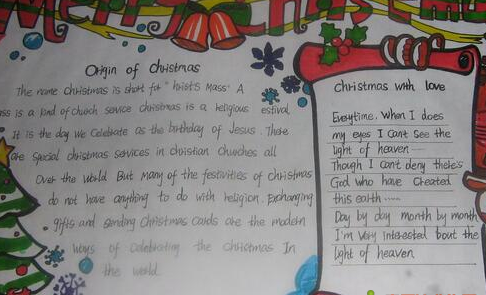 Merry Christmas
Origin of Christmas
The name Christmas is short for "hrist's Mass". A
ss is a kind of church service christmas is a religious estival
It is the day we celebrate as the birthday of Jesus. There
are special christmas services in christian churches all
Over the world But many of the festivities of christmas
do not have anything to do with religion. Exchanging
gifts and sending Christmas cards are the modern
ways of celebrating the Christmas In
the world.
Christmas with love
Everytime. When I does
my eyes I can't see the
light of heaven ......
Though I can't deny there's
God who have created
this earth .....
Day by day month by month
I'm very interested bout the
light of heaven